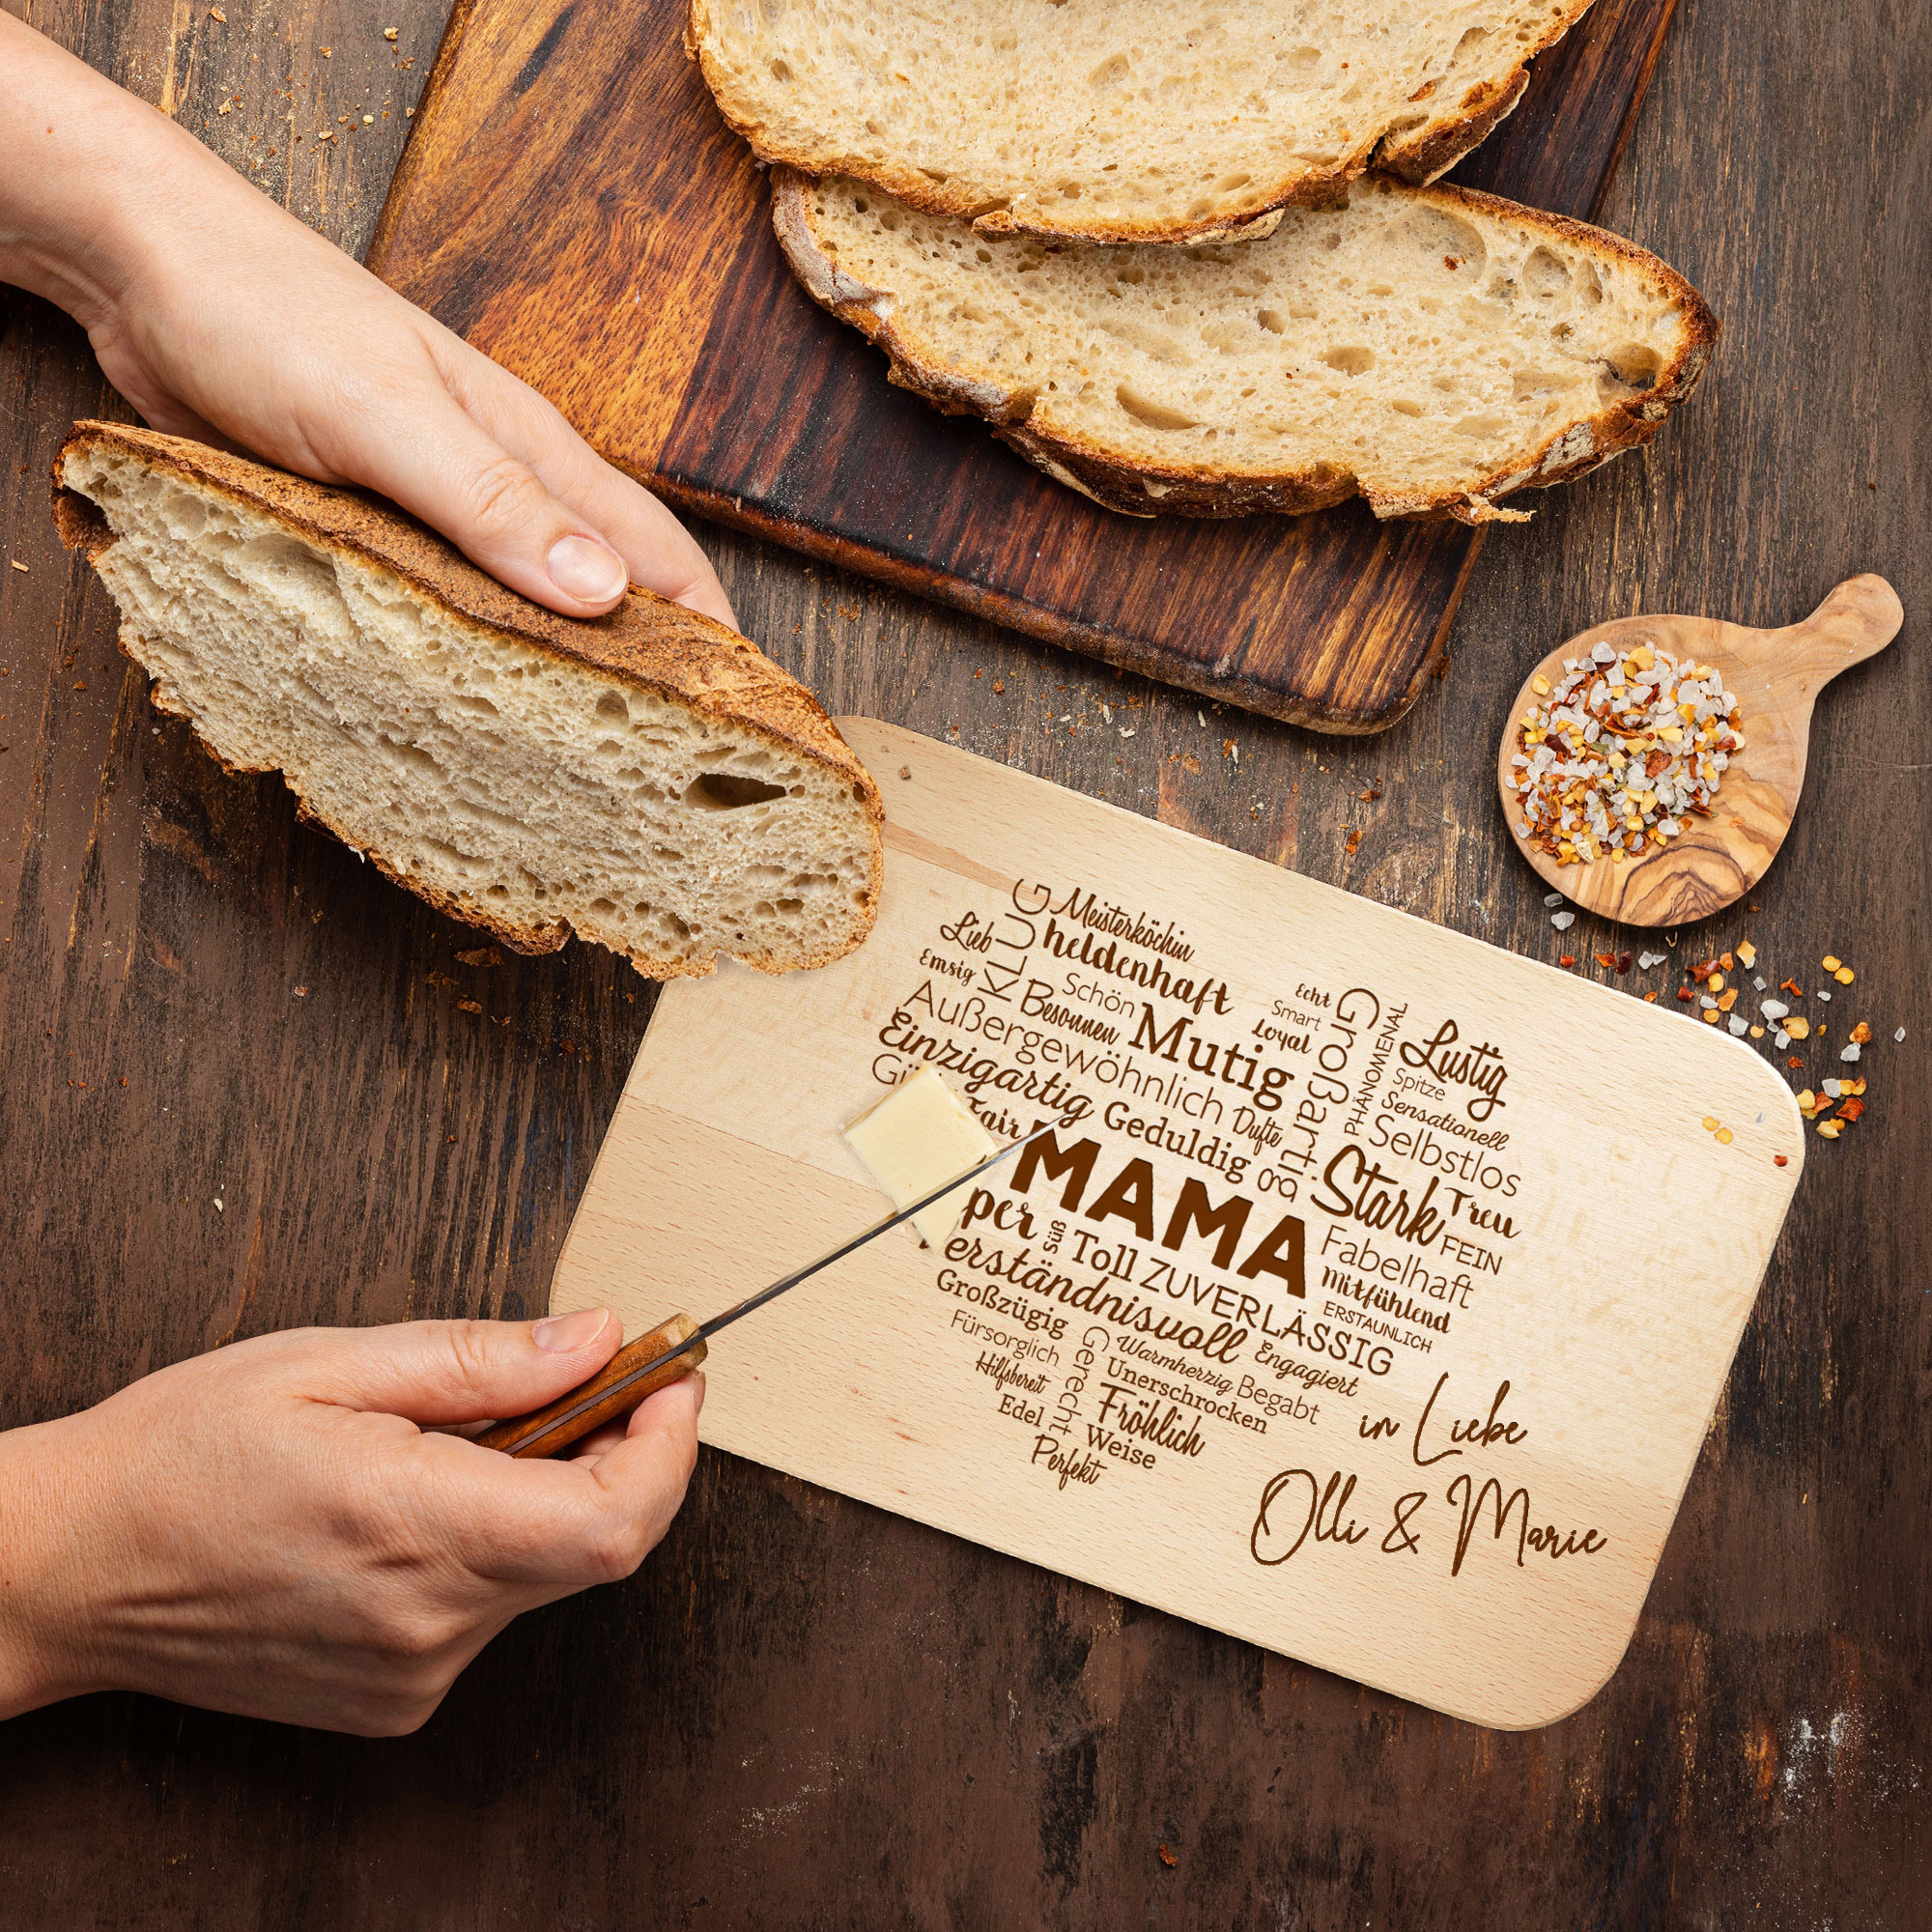 Meisterköchin
Klug
Lieb
heldenhaft
Emsig
Schön
Besonnen
Außergewöhnlich
Mutig
Echt
Smart
Loyal
Großartig
PHÄNOMENAL
Lustig
Spitze
Sensationell
Selbstlos
Einzigartig
Geduldig
Dufte
Fair
MAMA
Stark
Treu
FEIN
Fabelhaft
Mitfühlend
ERSTAUNLICH
per
süß
Toll
ZUVERLÄSSIG
erständnisvoll
Großzügig
Fürsorglich
Gerecht
Warmherzig
Engagiert
Hilfsbereit
Unerschrocken
Begabt
Edel
Fröhlich
Weise
Perfekt
in Liebe
Olli & Marie